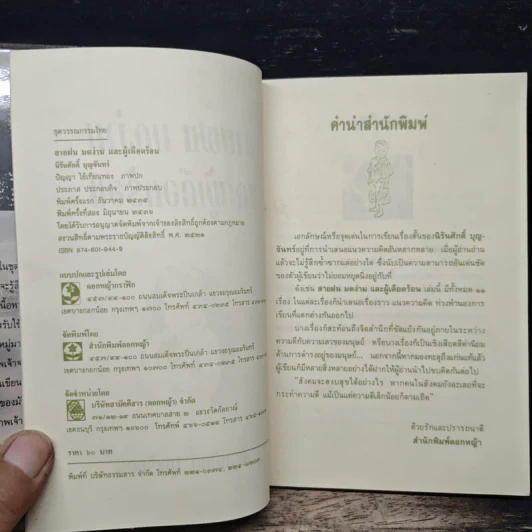 ชุดวรรณกรรมไทย
สายฝน มดง่าม และผู้เดือดร้อน
นิรันศักดิ์ บุญจันทร์
ปัญญา ไข้เทียนทอง ภาพปก
ประภาส ประกอบกิจ ภาพประกอบ
พิมพ์ครั้งแรก ธันวาคม ๒๕๓๔
พิมพ์ครั้งที่สอง มิถุนายน ๒๕๓๖
โดยได้รับการอนุญาตจัดพิมพ์จากเจ้าของลิขสิทธิ์ถูกต้องตามกฎหมาย
สงวนลิขสิทธิ์ตามพระราชบัญญัติลิขสิทธิ์ พ.ศ. ๒๕๒๑
ISBN 974-601-944-9
แบบปกและรูปเล่มโดย
ดอกหญ้ากราฟิก
๔๕๓/๔๔-๑๐๐ ถนนสมเด็จพระปิ่นเกล้า แขวงอรุณอมรินทร์
จัดพิมพ์โดย
สำนักพิมพ์ดอกหญ้า
๔๕๓/๔๔-๑๐๐ ถนนสมเด็จพระปิ่นเกล้า แขวงอรุณอมรินทร์
จัดจำหน่ายโดย
บริษัทสามัคคีสาร (ดอกหญ้า) จำกัด
๓๑/๑๒-๑๙ ถนนเทศบาลสาย ๒ แขวงวัดกัลยาณ์
ราคา ๖๐ บาท
พิมพ์ที่ บริษัทธรรมสาร จำกัด โทรศัพท์
คำนำสำนักพิมพ์
เอกลักษณ์หรือจุดเด่นในการเขียนเรื่องสั้นของนิรันศักดิ์ บุญ-
จันทร์อยู่ที่การนำเสนอแนวความคิดอันหลากหลาย เมื่อผู้อ่านอ่าน
แล้วจะไม่รู้สึกซ้ำซากแต่อย่างใด ซึ่งนับเป็นความสามารถอันเด่นชัด
ของตัวผู้เขียนว่าไม่ยอมหยุดนิ่งอยู่กับที่
ดังเช่น สายฝน มดง่าม และผู้เดือดร้อน เล่มนี้ มีทั้งหมด ๑๑
เรื่อง ในแต่ละเรื่องก็นำเสนอเรื่องราว แนวความคิด ท่วงทำนองการ
เขียนที่แตกต่างกันออกไป
บางเรื่องก็สะท้อนถึงจิตสำนึกที่ขัดแย้งกันอยู่ภายในระหว่าง
ความดีกับความเลวของมนุษย์ หรือบางเรื่องก็เป็นเชิงเสียดสีค่านิยม
ด้านการดำรงอยู่ของมนุษย์... นอกจากนี้หากมองทะลุถึงแก่นแท้แล้ว
ผู้เขียนก็มีหลายสิ่งหลายอย่างได้ฝากให้ผู้อ่านนำไปขบคิดกันต่อไป
"สังคมจะสงบสุขได้อย่างไร หากคนในสังคมยังละเลยที่จะ
กระทำความดี แม้เป็นแต่ความดีเล็กน้อยก็ตามเถิด"
ด้วยรักและปรารถนาดี
สำนักพิมพ์ดอกหญ้า